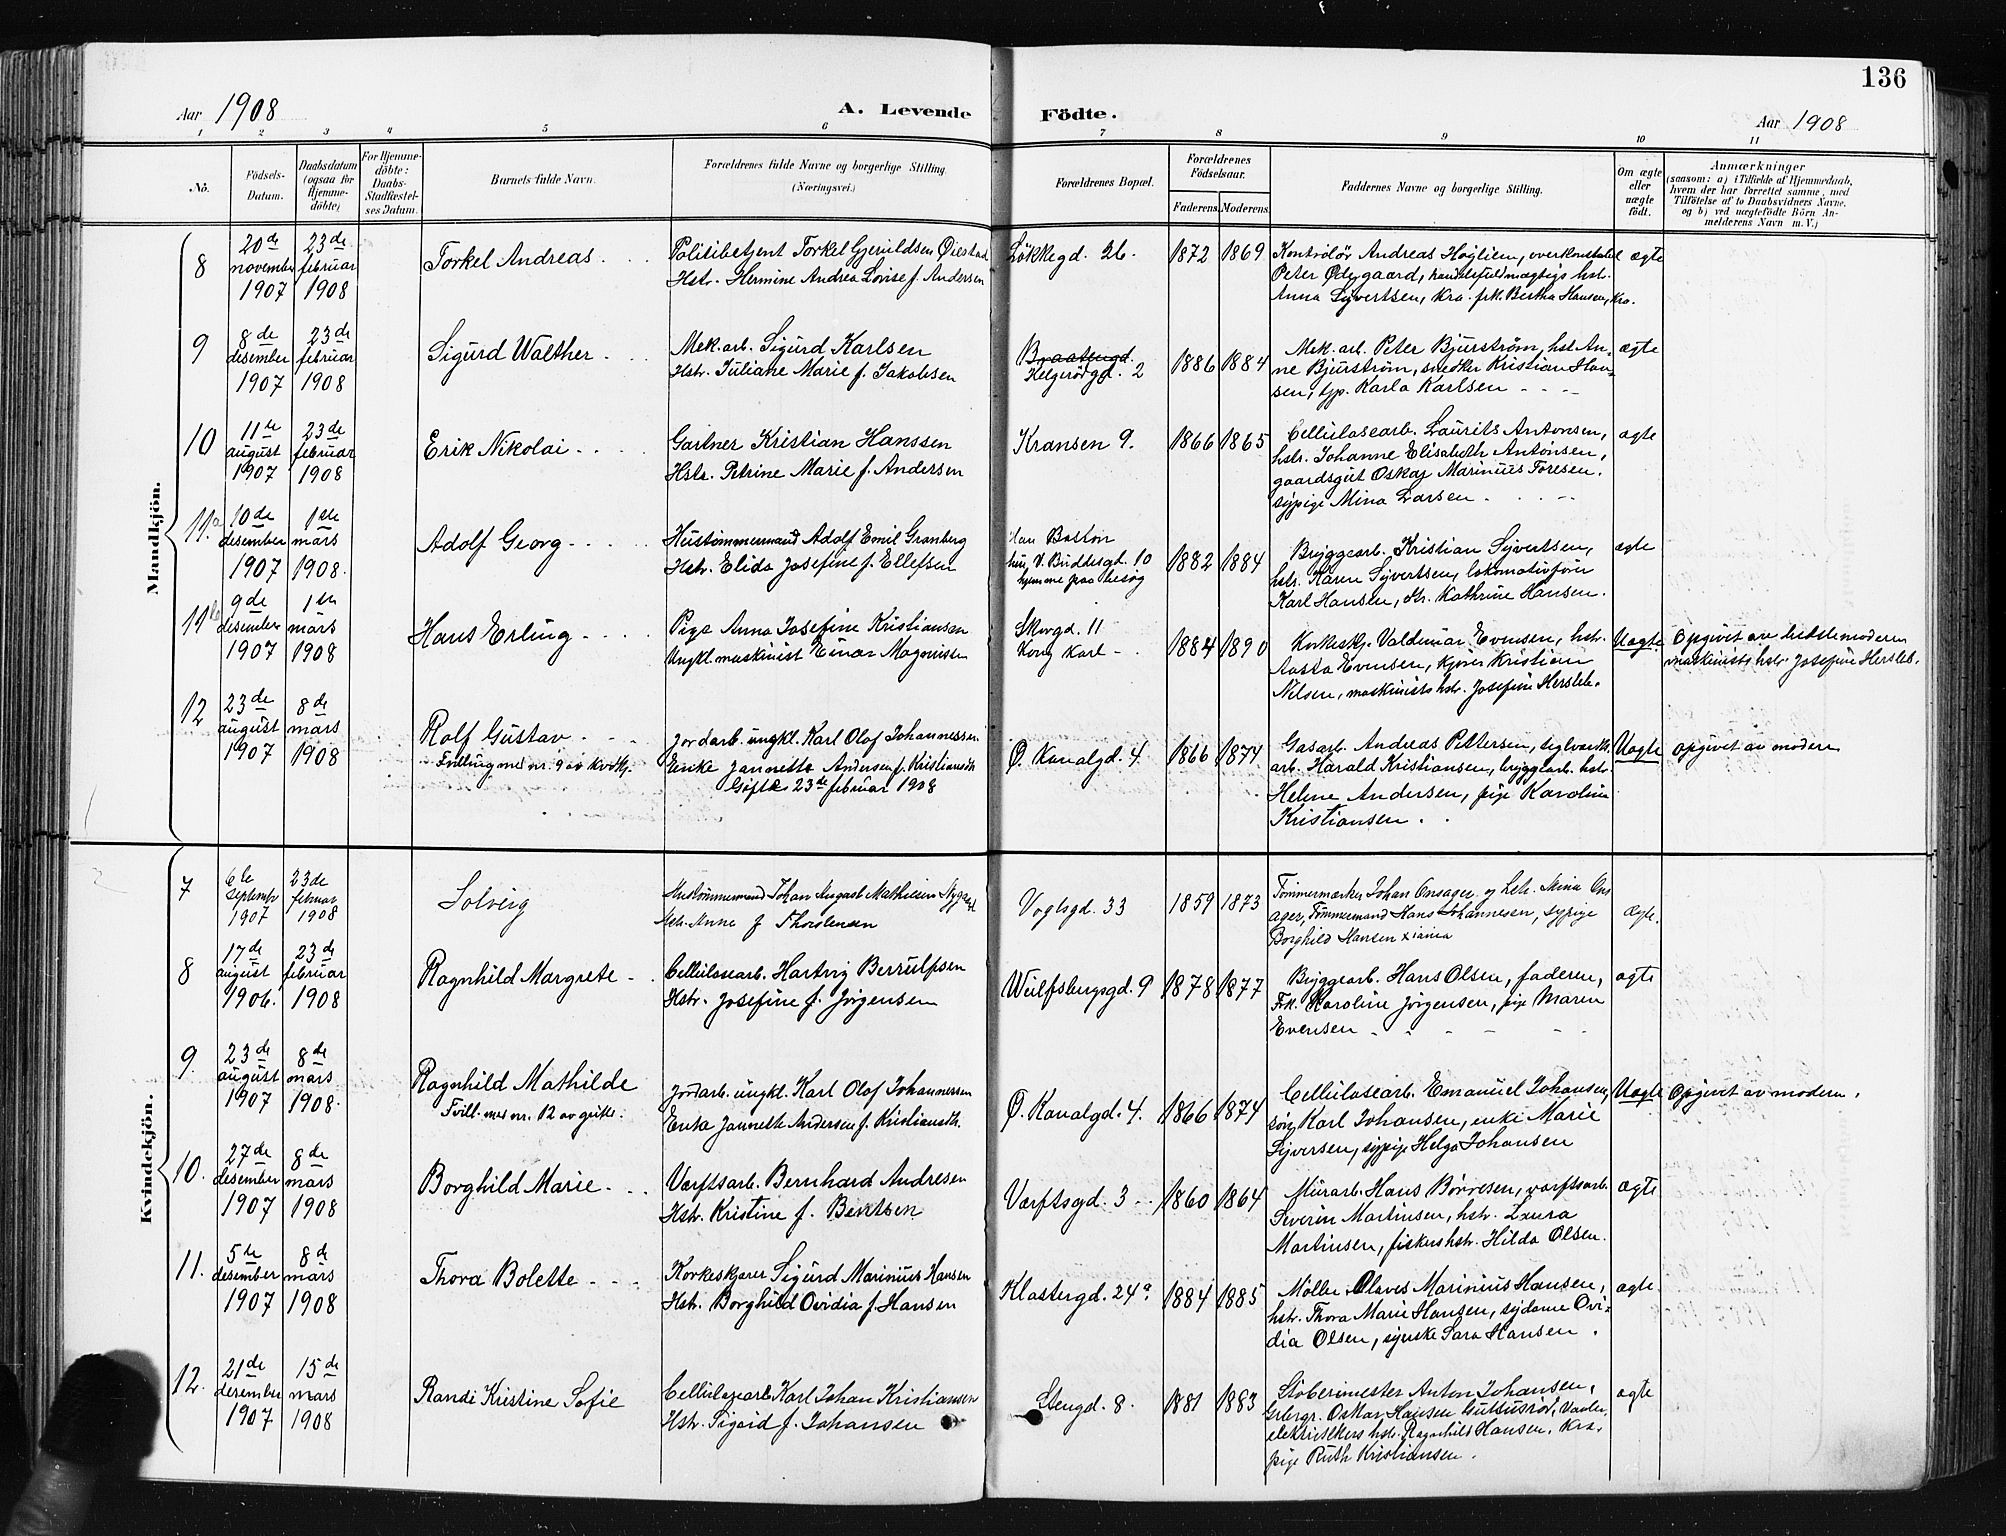 136
Aar 1908
A. Levende
Födte.
Aar 1908
1 2 3 4 5 6 7 8 9 10 11
No.
Födsels-
Datum.
Daabsdatum
(ogsaa for
Hjemme-
döbte)
For Hjemme-
döbte:
Daabs-
Stadfæstel-
ses Datum.
Barnets fulde Navn.
Forældrenes fulde Navne og borgerlige Stilling.
(Næringsvei.)
Forældrenes Bopæl.
Forældrenes
Födselsaar.
Faderens. Moderens.
Faddernes Navne og borgerlige Stilling.
Om ægte
eller
uægte
födt.
Anmærkninger
(saasom: a) i Tilfælde af Hjemmedaab,
hvem der har forrettet samme, med
Tilföielse af to Daabsvidners Navne,
og b) ved uægtefödte Börn An-
melderens Navn m. V.)
Mandkjön.
8
20de november 1907
23de februar 1908
Torkel Andreas
Politibetjent Torkel Gjeruldsen Øiestad
Hstr. Hermine Andrea Lovise f. Andersen
Løkkegd. 26.
1872 1869
Kontrolør Andreas Høglien, overkonstabel
Peter Ødegaard, handelsfuldmægtigs hst.
Anna Syvertsen, Kra. frk. Bertha Hansen, Kra.
ægte
9
8de desember 1907
23de februar 1908
Sigurd Walther
Mek. arb. Sigurd Karlsen
Hstr. Juliane Marie f. Jakobsen
Braatengd.
Helgerødgd. 2
1886 1884
Mek. arb. Peter Bjurström, hst. An-
ne Bjurström, snedker Kristian Han-
sen, syp. Karla Karlsen
ægte
10
11te august 1907
23de februar 1908
Erik Nikolai
Gartner Kristian Hanssen
Hstr. Petrine Marie f. Andersen
Kransen 9.
1866 1865
Cellulosearb. Laurits Antonsen,
hstr. Johanne Elisabeth Antonsen,
gaardsgut Oskar Marinius Foresen.
sypige Mina Larsen
ægte
11a
10de desember 1907
1ste mars 1908.
Adolf Georg
Hustømmermand Adolf Emil Granberg
Hstr. Elida Josefine f. Ellefsen
Han Boston
hun V. Buddesgd. 10
hjemme paa besøg
1882 1884
Bryggearb. Kristian Syvertsen,
hstr. Karen Syvertsen, lokomotivfører
Karl Hansen, str. Kathrine Hansen.
ægte
11b
9de desember 1907
1ste mars 1908
Hans Erling
Pige Anna Josefine Kristiansen
Ungkl. maskinist Einar Magnussen
Skorgd. 11
Kong Karl
1884 1890
Korkeskj. Valdemar Evensen, hstr.
Aasta Evensen, kjører Kristian
Nilsen, maskinists hstr. Josefine Hersleb.
Uægte
Opgivet av bedstemoderen
maskinists hstr. Josefine Hersleb.
12
23de august 1907
8de mars 1908
Rolf Gustav
Tvilling med nr. 9 av kvdkj.
Jordarb. ungkl. Karl Olof Johannessen
Enke Jannette Andersen f. Kristiansdt.
Giftet 23de februar 1908
Ø. Kanalgd. 4
1866 1874
Gasarb. Andreas Pettersen, teglverdk.
arb. Harald Kristiansen, bryggearb. hstr.
Helene Andersen, pige Karoline
Kristiansen.
Uægte
Opgivet av moderen
Kvindekjön.
7
6te september 1907
23de februar 1908
Solveig
Hustømmermand Johan August Mathiesen Nyggaard
Hstr. Anne f. Thorstensen
Voglsgd. 33
1859 1873
Tømmermærker Johan Onsager og hstr. Stina Ons-
ager, Tømmermand Hans Johannesen, sypige
Borghild Hansen Xiania
Ægte.
8
17de august 1906.
23de februar 1908
Ragnhild Margrete
Cellulosearb. Hartvig Berrulfsen
Hstr. Josefine f. Jørgensen
Wulfsbergsgd. 9
1878 1877
Bryggearb. Hans Olsen, faderen,
Frk. Karoline Jørgensen, pige Maren
Evensen
ægte
9.
23de august 1907
8de mars 1908.
Ragnhild Mathilde
Tvill. med nr. 12 av gutter.
Jordarb. ungkl. Karl Olof Johannessen
Enke Jannette Andersen f. Kristiansdt.
Ø. Kanalgd. 4.
1866 1874
Cellulosearb. Emanuel Johansen,
søn Karl Johansen, enke Marie
Syversen, sypige Helga Johansen
Uægte
Opgivet av moderen.
10.
27de desember 1907
8de mars 1908
Borghild Marie
Værftsarb. Bernhard Andresen
Hstr. Kristine f. Bentsen
Værftsgd. 3
1860 1864
Murarb. Hans Børresen, værftsarb.
Severin Martinsen, hstr. Laura
Martinsen, fiskers hstr. Hilda Olsen.
ægte
11.
5te desember 1907
8de mars 1908
Thora Bolette
Korkeskjærer Sigurd Marinius Hansen
Hstr. Borghild Ovidia f. Hansen
Klostergd. 24a
1884 1885
Møller Olaves Marinius Hansen,
hstr. Thora Marie Hansen, sydame Ovi-
dia Olsen, syerske Sara Hansen.
ægte.
12.
21de desember 1907
15de mars 1908
Randi Kristine Sofie
Cellulosearb. Karl Johan Kristiansen
Hstr. Sigrid f. Johansen
Stengd. 8.
1881 1883
Støberimester Anton Johansen,
Oskar Hansen
elektrikers hstr. Ragnhild Hansen, Kra,
pige Ruth Kristiansen.
ægte